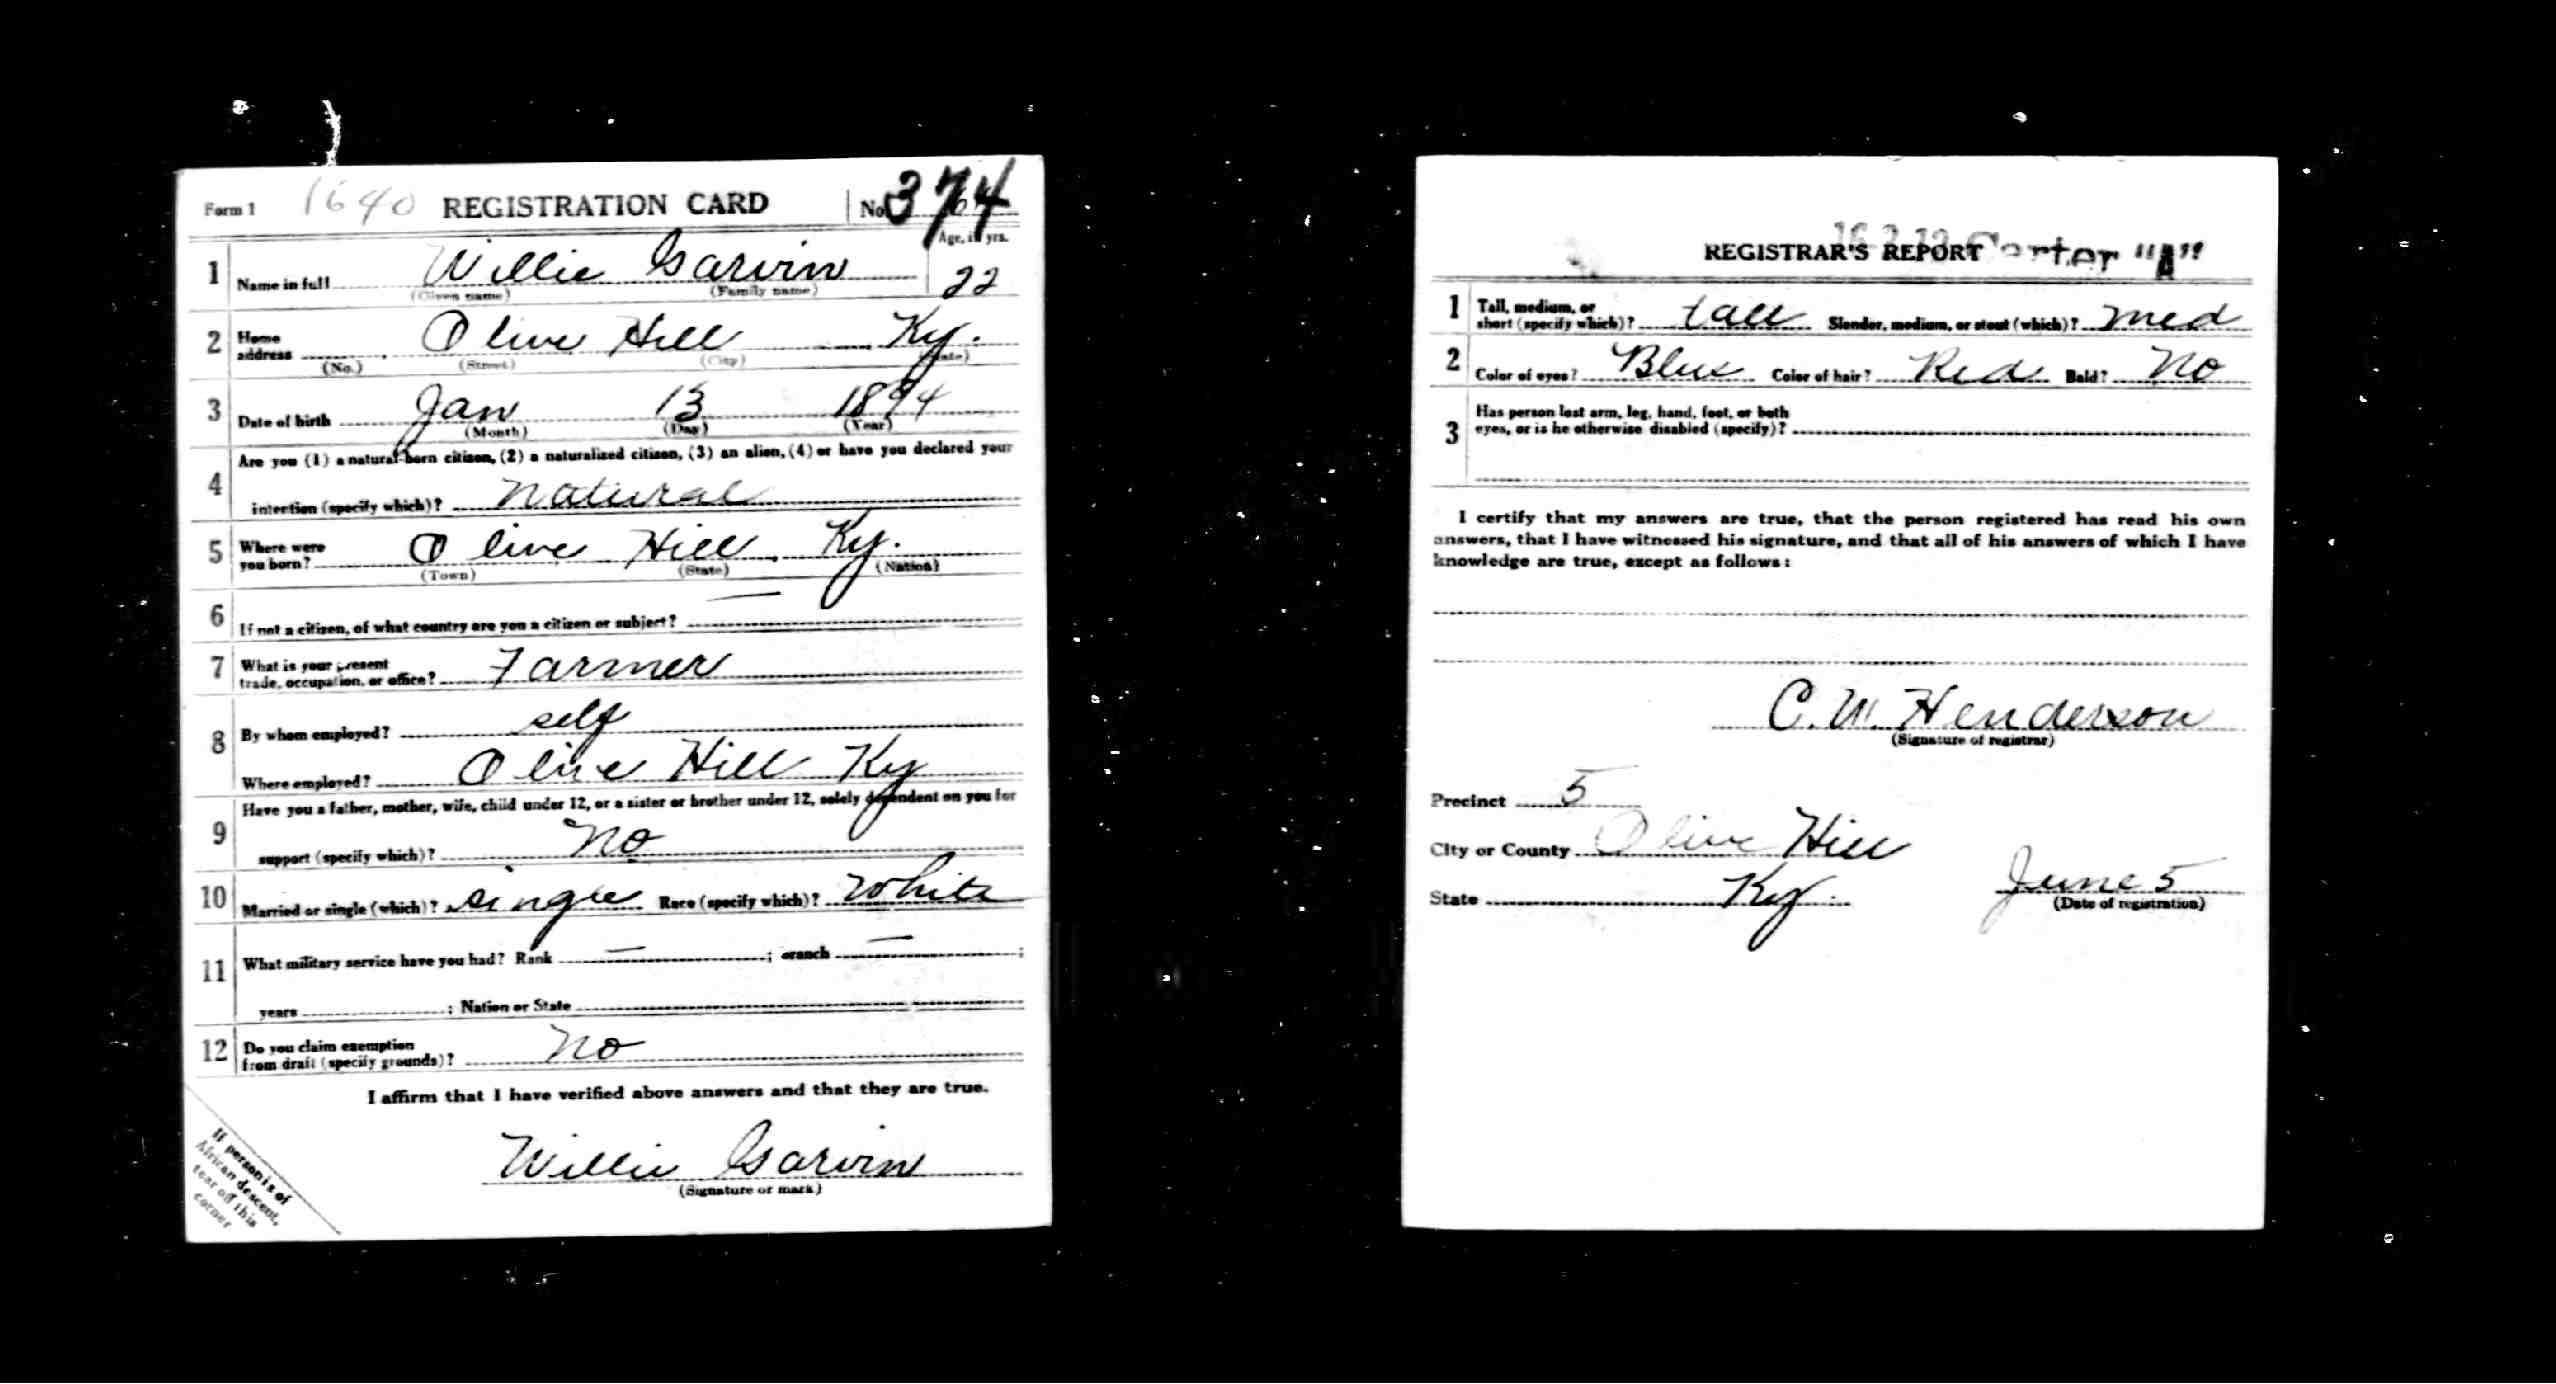 Form 1 1640 REGISTRATION CARD No. 374
Age, in yrs.
1 Name in full Willie Garvin 22
(Given name) (Family name)
2 Home address Olive Hill Ky.
(No.) (Street) (City) (State)
3 Date of birth Jan 13 1894
(Month) (Day) (Year)
Are you (1) a natural-born citizen, (2) a naturalized citizen, (3) an alien, (4) or have you declared your
4 intention (specify which)? Natural
5 Where were you born? Olive Hill, Ky.
(Town) (State) (Nation)
6 If not a citizen, of what country are you a citizen or subject? —
7 What is your present trade, occupation, or office? Farmer
8 By whom employed? self
Where employed? Olive Hill Ky
Have you a father, mother, wife, child under 12, or a sister or brother under 12, solely dependent on you for
9 support (specify which)? No
10 Married or single (which)? single Race (specify which)? White
11 What military service have you had? Rank — ; branch — ;
years ; Nation or State
12 Do you claim exemption from draft (specify grounds)? No
I affirm that I have verified above answers and that they are true.
Willie Garvin
(Signature or mark)
If person is of
African descent,
tear off this
corner
REGISTRAR'S REPORT Carter "A"
1 Tall, medium, or short (specify which)? tall Slender, medium, or stout (which)? med
2 Color of eyes? Blue Color of hair? Red Bald? No
3 Has person lost arm, leg, hand, foot, or both
eyes, or is he otherwise disabled (specify)?
I certify that my answers are true, that the person registered has read his own
answers, that I have witnessed his signature, and that all of his answers of which I have
knowledge are true, except as follows:
C. W. Henderson
(Signature of registrar)
Precinct 5
City or County Olive Hill
State Ky. June 5
(Date of registration)